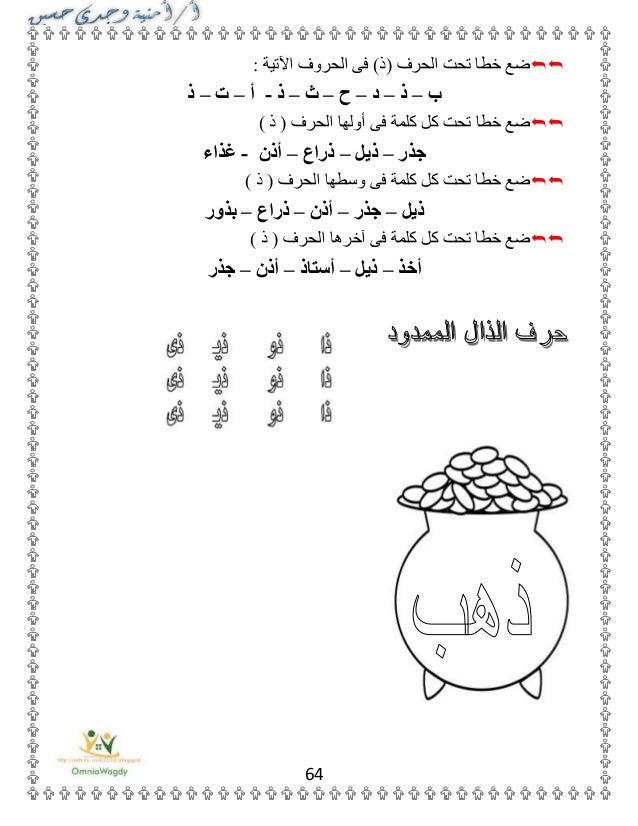 أ/ أمنية وجدى حسين
ضع خطا تحت الحرف (ذ) فى الحروف الآتية :
ب – ذ – د – ح – ث – ذ - أ – ت – ذ
ضع خطا تحت كل كلمة فى أولها الحرف ( ذ )
جذر – ذيل – ذراع – أذن - غذاء
ضع خطا تحت كل كلمة فى وسطها الحرف ( ذ )
ذيل – جذر – أذن – ذراع – بذور
ضع خطا تحت كل كلمة فى آخرها الحرف ( ذ )
أخذ – ذيل – أستاذ – أذن – جذر
حرف الذال الممدود
ذا ذو ذيـ ذى
ذا ذو ذيـ ذى
ذا ذو ذيـ ذى
ذهب
OmniaWagdy
64